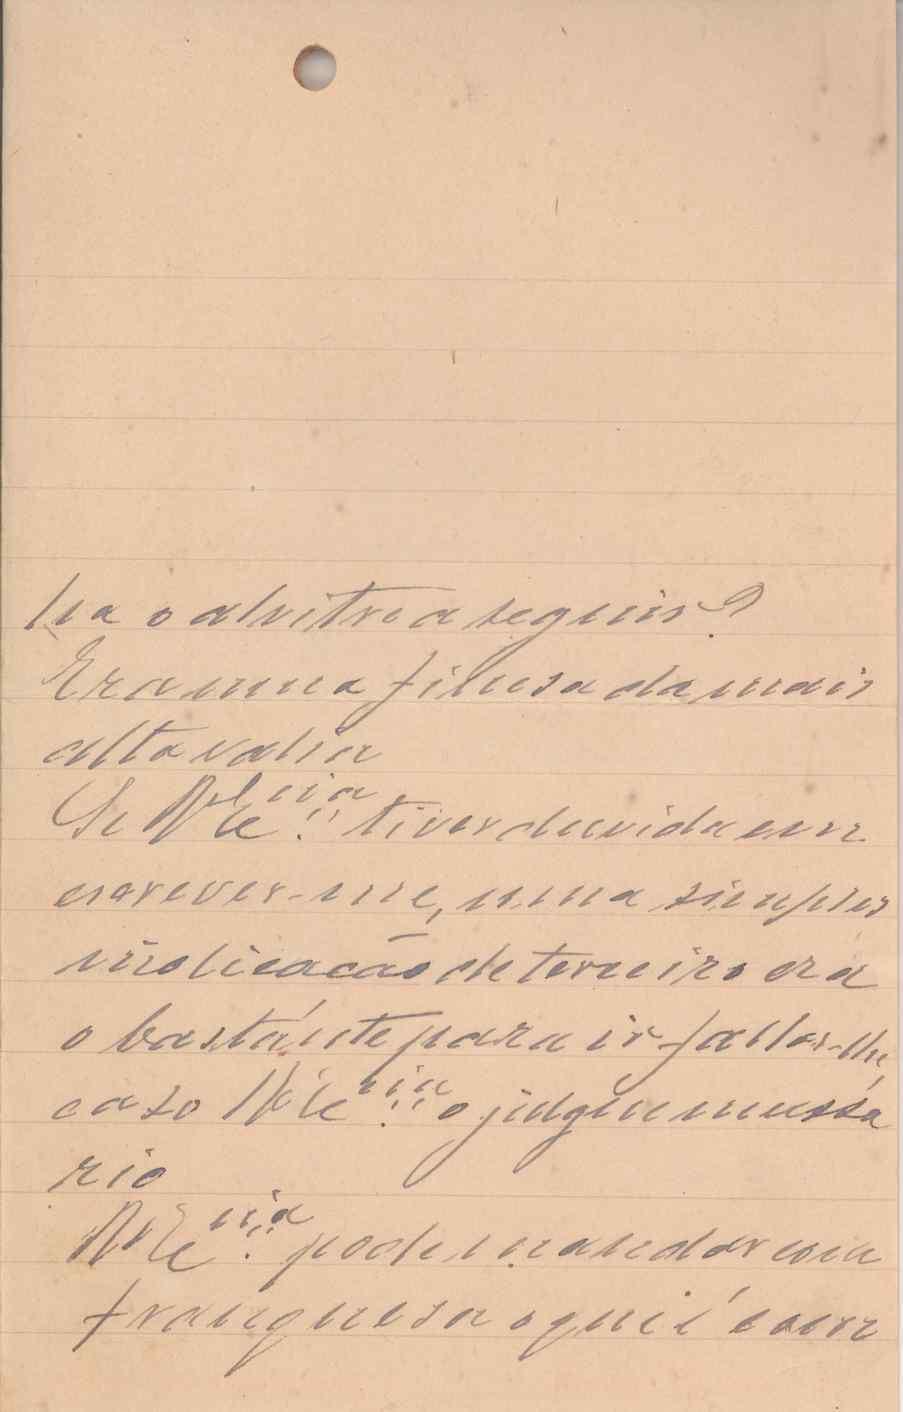 o alvitre a seguir?
Era uma finesa da mais
alta valia
Se V Ex.cia tiver duvida em
escrever-me, uma simples
indicacão de terceiro era
o bastánte para ir fallar-lhe,
caso V Ex.cia o julgue necessa
rio
V Ex.cia pode mandar com
franquesa o que é com